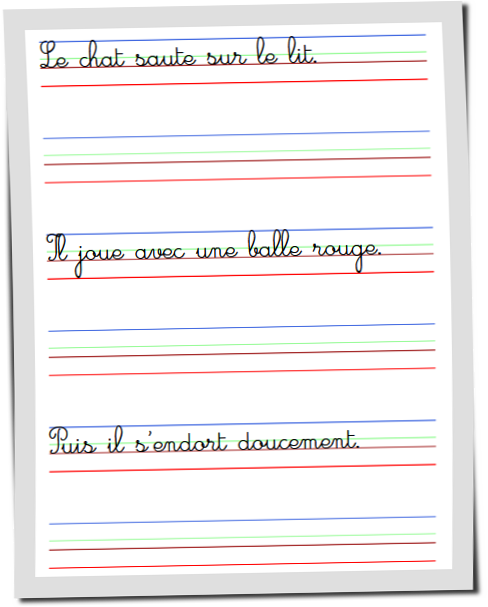 Le chat saute sur le lit.
Il joue avec une balle rouge.
Puis il s'endort doucement.